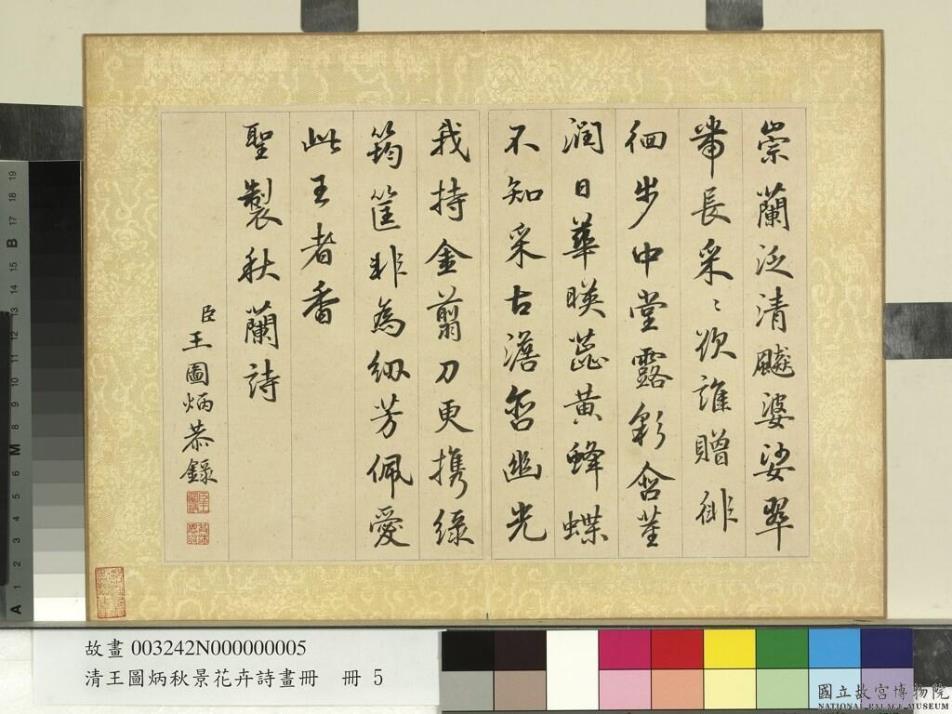 崇蘭泛清飈婆娑翠
帶長采〻欲誰贈徘
徊步中堂露彩含莖
潤日華暎蕊黄蜂蝶
不知采古澹含幽光
我持金翦刀更攜綠
筠筐非為紉芳佩愛
此王者香
聖製秋蘭詩
臣王圖炳恭錄
故畫 003242N000000005
清王圖炳秋景花卉詩畫冊 冊 5
國立故宮博物院
NATIONAL PALACE MUSEUM
A 1 2 3 4 5 6 M 8 9 10 11 12 13 14 15 B 17 18 19